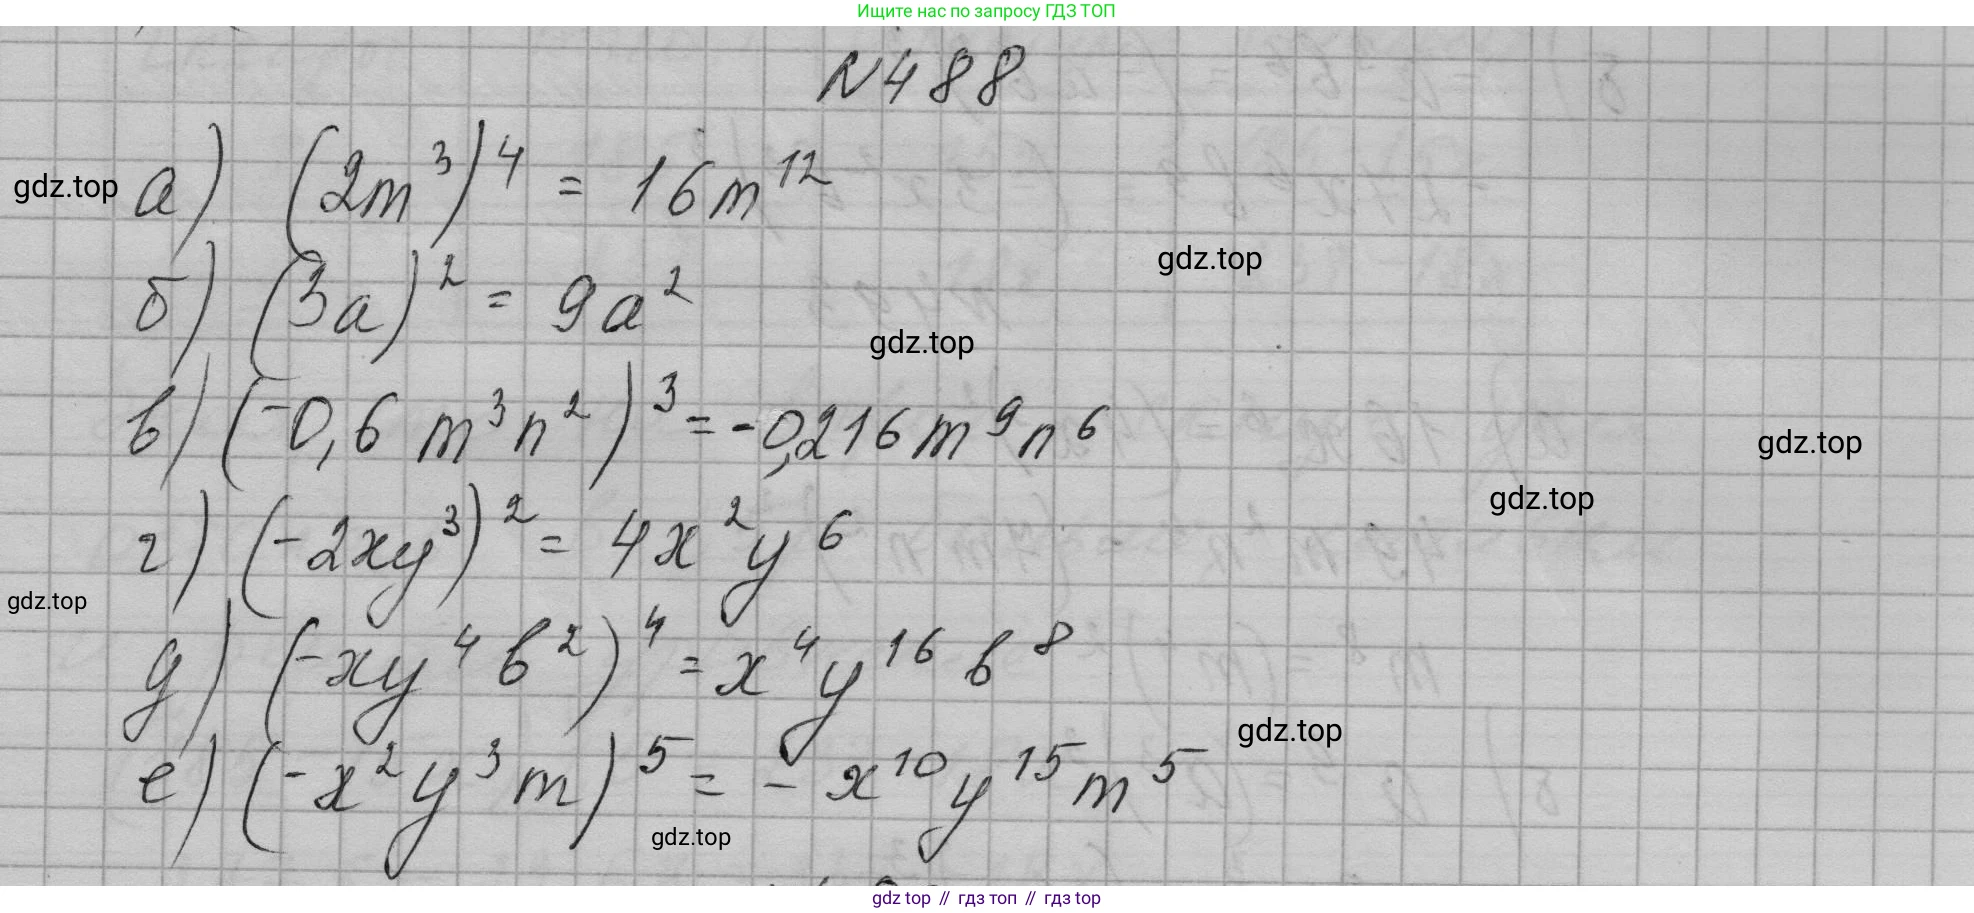 Ищите нас по запросу ГДЗ ТОП
N 488
а) (2m³)⁴ = 16m¹²
gdz.top
gdz.top
б) (3a)² = 9a²
gdz.top
в) (-0,6 m³n²)³ = -0,216m⁹n⁶
gdz.top
gdz.top
г) (-2xy³)² = 4x²y⁶
gdz.top
д) (-xy⁴b²)⁴ = x⁴y¹⁶b⁸
gdz.top
е) (-x²y³m)⁵ = -x¹⁰y¹⁵m⁵
gdz.top
gdz top // гдз топ // гдз top